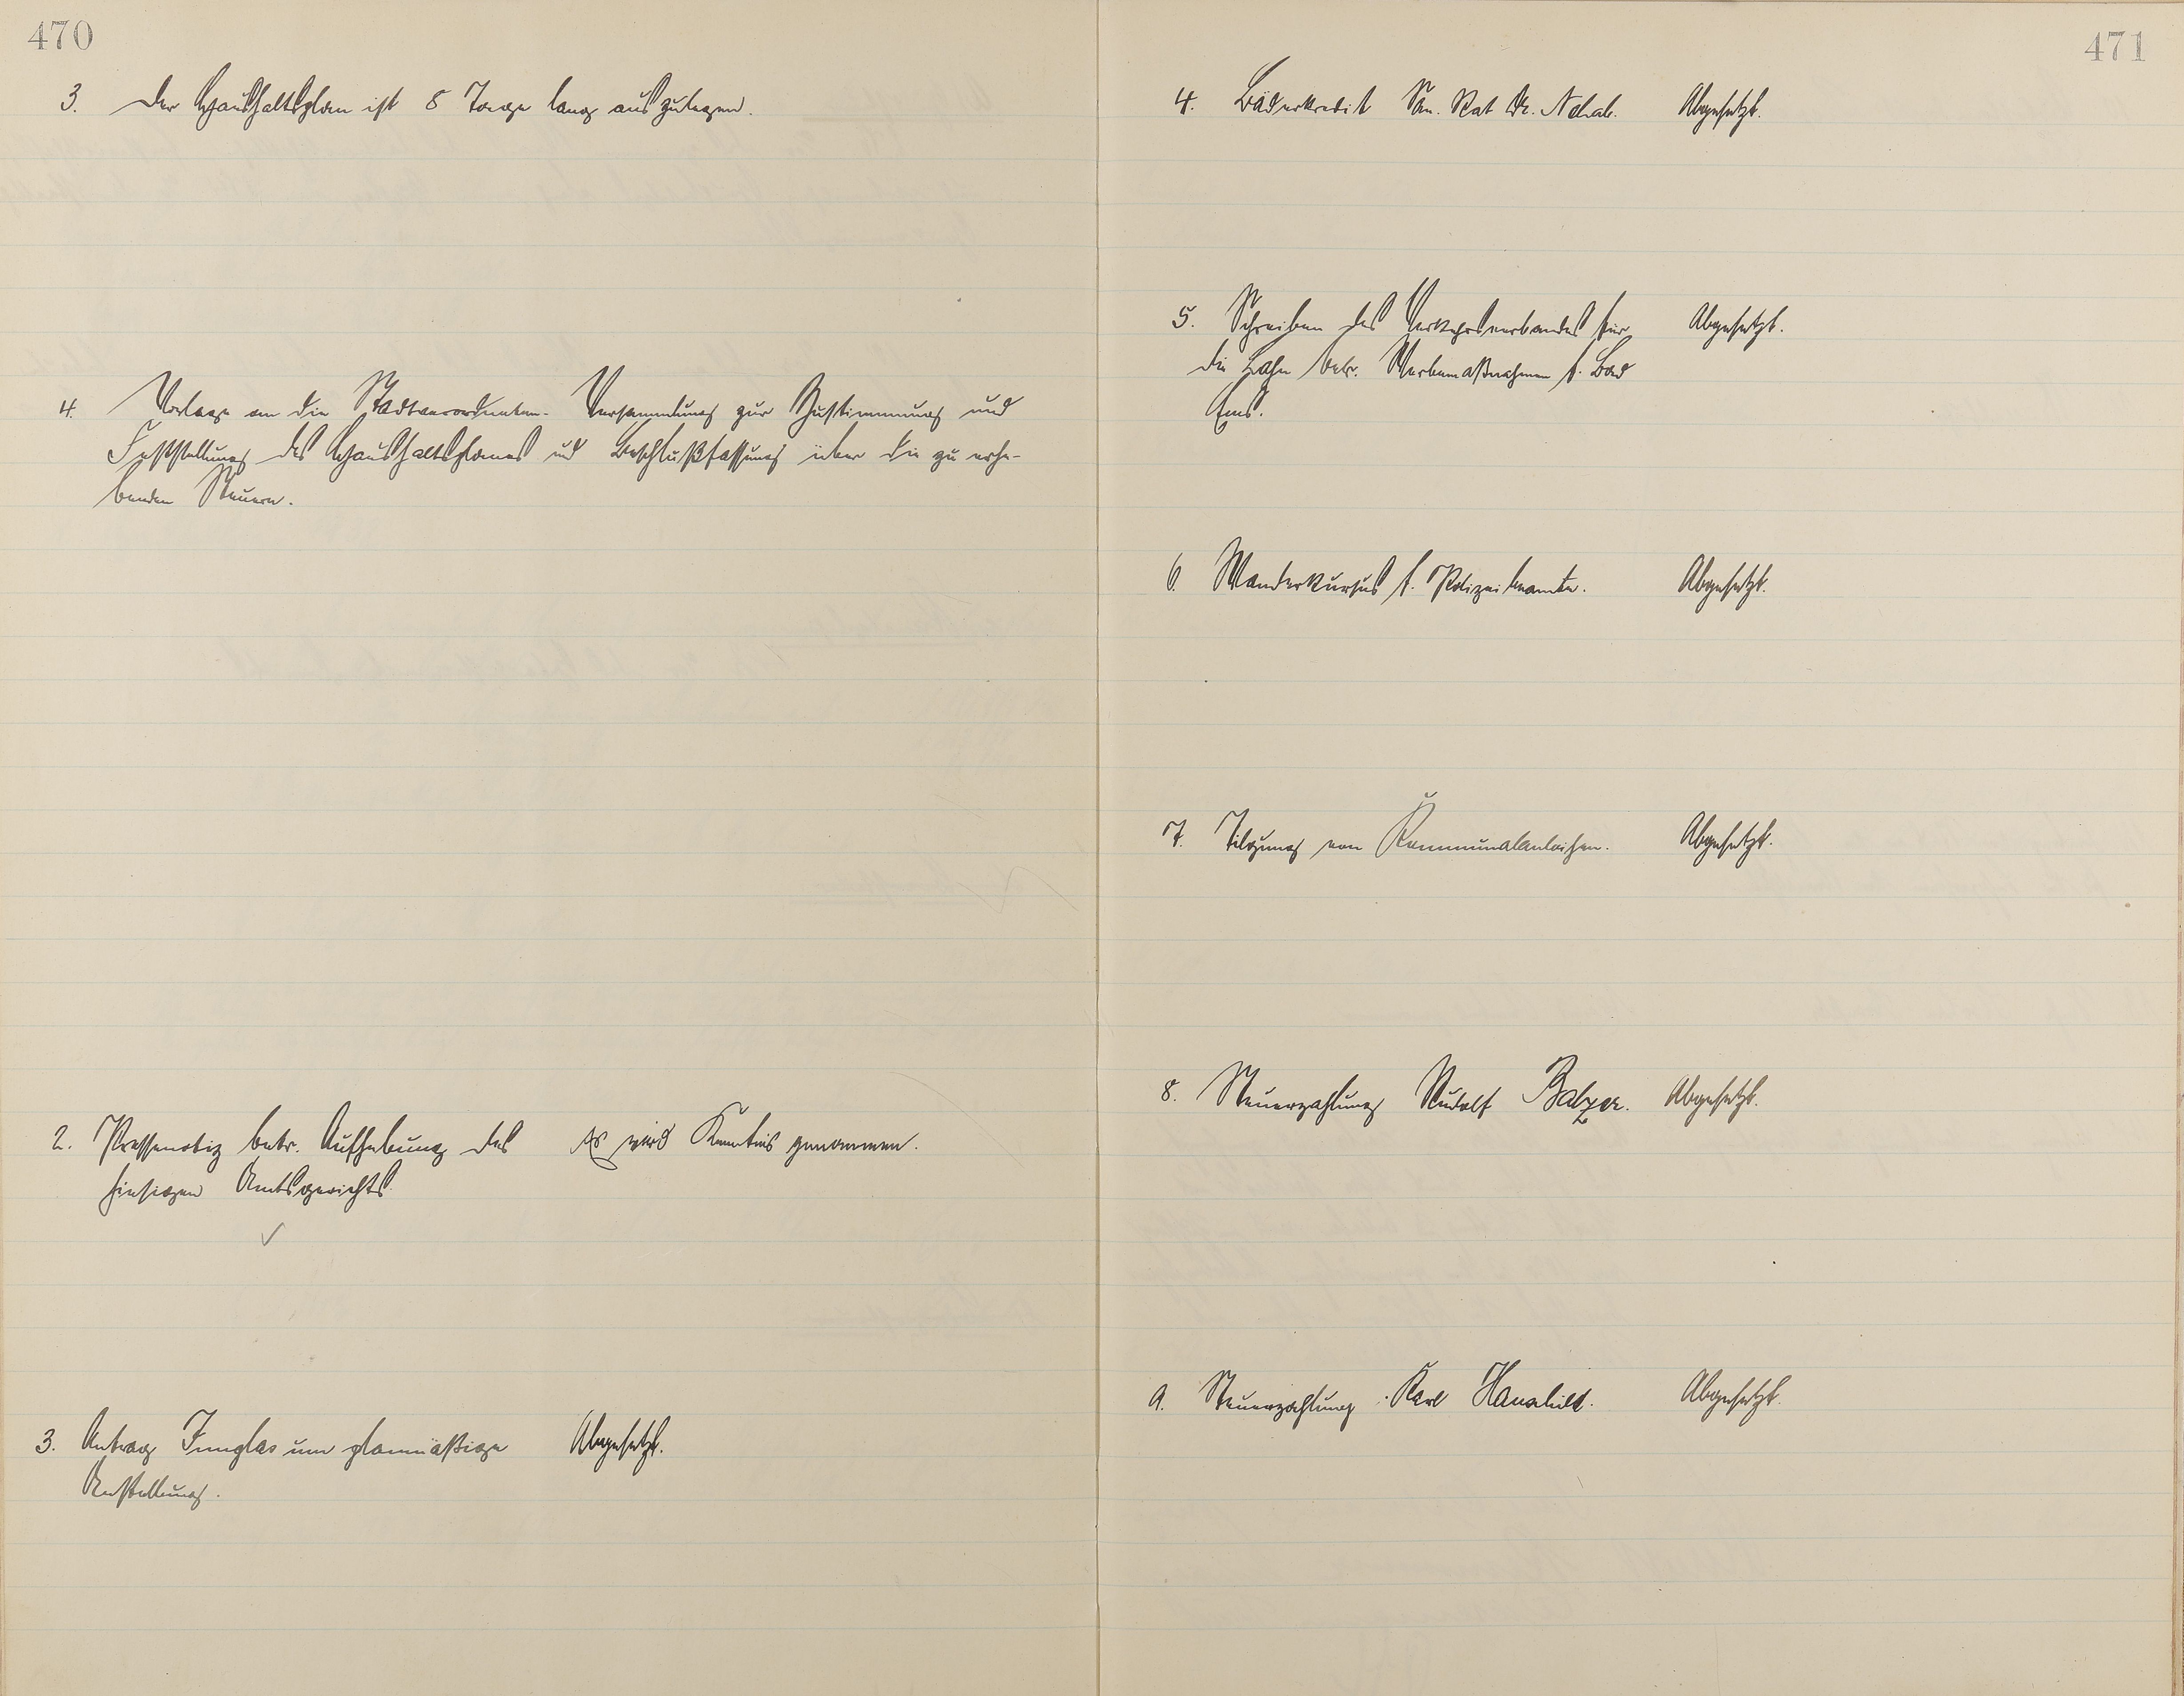 470
3. Der Haushaltsplan ist 8 Tage lang auszulegen.
4. Vorlage an die Stadtverordneten-Versammlung zur Zustimmung und
Feststellung des Haushaltsplanes und Beschlußfassung über die zu erhe-
benden Steuern.
2. Pressenotiz betr. Aufhebung des Es wird Kenntnis genommen.
hiesigen Amtsgerichts
3. Antrag Junglas um planmäßige Abgesetzt.
Anstellung.
471
4. Bäderkredit San. Rat Dr. Abgesetzt.
5. Schreiben des Verkehrsverbandes für Abgesetzt.
die Lahn betr. Werbemaßnahmen f. Bad
Ems.
6. Wanderkursus f. Polizeibeamte. Abgesetzt.
7. Tilgung von Kommunalanleihen. Abgesetzt.
8. Steuerzahlung Rudolf Balzer. Abgesetzt.
9. Steuerzahlung Karl Abgesetzt.